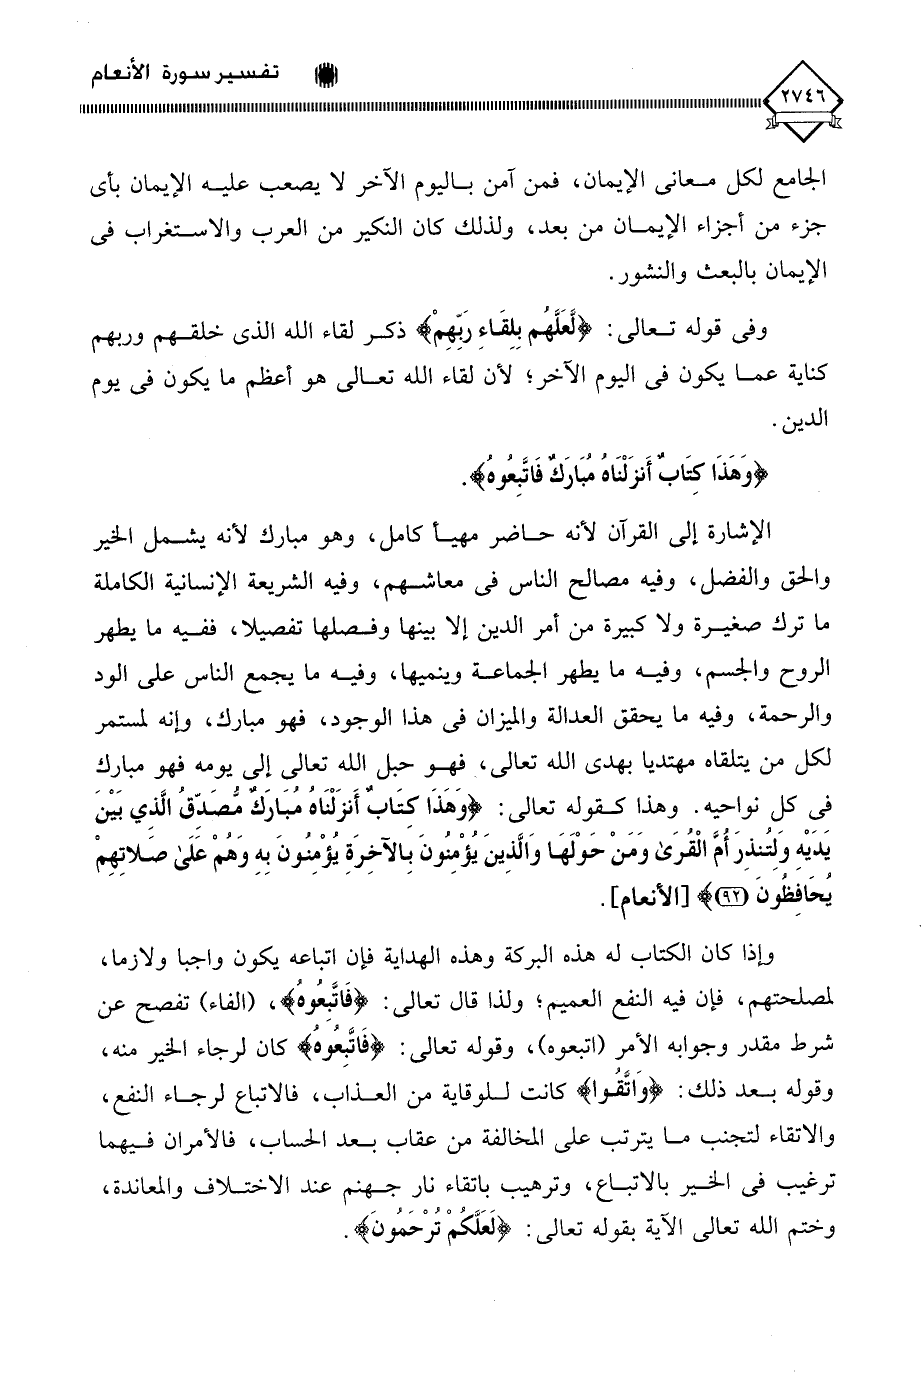 تفسير سورة الأنعام
٢٧٤٦
الجامع لكل معانى الإيمان، فمن آمن باليوم الآخر لا يصعب عليه الإيمان بأى
جزء من أجزاء الإيمان من بعد، ولذلك كان النكير من العرب والاستغراب فى
الإيمان بالبعث والنشور.
وفى قوله تعالى: ﴿لَّعَلَّهُم بِلِقَاءِ رَبِّهِمْ﴾ ذكر لقاء الله الذى خلقهم وربهم
كناية عما يكون فى اليوم الآخر؛ لأن لقاء الله تعالى هو أعظم ما يكون فى يوم
الدين.
﴿وَهَذَا كِتَابٌ أَنزَلْنَاهُ مُبَارَكٌ فَاتَّبِعُوهُ﴾.
الإشارة إلى القرآن لأنه حاضر مهيأ كامل، وهو مبارك لأنه يشمل الخير
والحق والفضل، وفيه مصالح الناس فى معاشهم، وفيه الشريعة الإنسانية الكاملة
ما ترك صغيرة ولا كبيرة من أمر الدين إلا بينها وفصلها تفصيلا، ففيه ما يطهر
الروح والجسم، وفيه ما يطهر الجماعة وينميها، وفيه ما يجمع الناس على الود
والرحمة، وفيه ما يحقق العدالة والميزان فى هذا الوجود، فهو مبارك، وإنه لمستمر
لكل من يتلقاه مهتديا بهدى الله تعالى، فهو حبل الله تعالى إلى يومه فهو مبارك
فى كل نواحيه. وهذا كقوله تعالى: ﴿وَهَذَا كِتَابٌ أَنزَلْنَاهُ مُبَارَكٌ مُّصَدِّقُ الَّذِي بَيْنَ
يَدَيْهِ وَلِتُنذِرَ أُمَّ الْقُرَىٰ وَمَنْ حَوْلَهَا وَالَّذِينَ يُؤْمِنُونَ بِالآخِرَةِ يُؤْمِنُونَ بِهِ وَهُمْ عَلَىٰ صَلاتِهِمْ
يُحَافِظُونَ (٩٢)﴾ [الأنعام].
وإذا كان الكتاب له هذه البركة وهذه الهداية فإن اتباعه يكون واجبا ولازما،
لمصلحتهم، فإن فيه النفع العميم؛ ولذا قال تعالى: ﴿فَاتَّبِعُوهُ﴾، (الفاء) تفصح عن
شرط مقدر وجوابه الأمر (اتبعوه)، وقوله تعالى: ﴿فَاتَّبِعُوهُ﴾ كان لرجاء الخير منه،
وقوله بعد ذلك: ﴿وَاتَّقُوا﴾ كانت للوقاية من العذاب، فالاتباع لرجاء النفع،
والاتقاء لتجنب ما يترتب على المخالفة من عقاب بعد الحساب، فالأمران فيهما
ترغيب فى الخير بالاتباع، وترهيب باتقاء نار جهنم عند الاختلاف والمعاندة،
وختم الله تعالى الآية بقوله تعالى: ﴿لَعَلَّكُمْ تُرْحَمُونَ﴾.